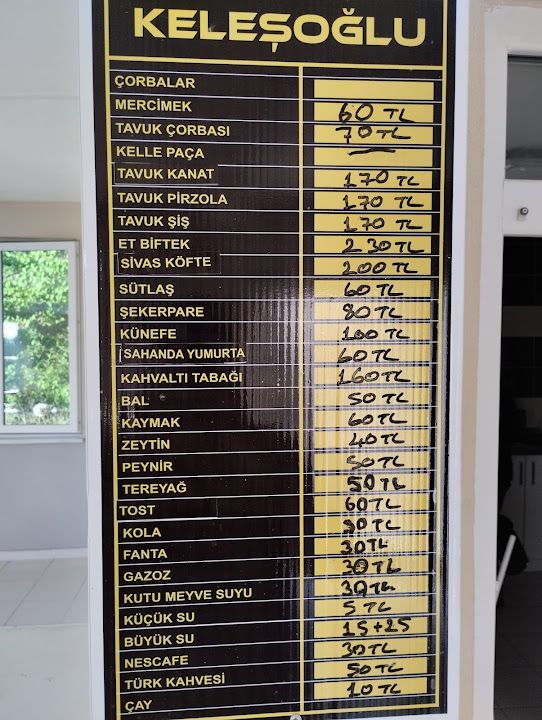 KELEŞOĞLU
ÇORBALAR
MERCİMEK 60 TL
TAVUK ÇORBASI 70 TL
KELLE PAÇA —
TAVUK KANAT 170 TL
TAVUK PİRZOLA 170 TL
TAVUK ŞİŞ 170 TL
ET BİFTEK 230 TL
SİVAS KÖFTE 200 TL
SÜTLAŞ 60 TL
ŞEKERPARE 80 TL
KÜNEFE 100 TL
SAHANDA YUMURTA 60 TL
KAHVALTI TABAĞI 160 TL
BAL 50 TL
KAYMAK 60 TL
ZEYTİN 40 TL
PEYNİR 50 TL
TEREYAĞ 50 TL
TOST 60 TL
KOLA 30 TL
FANTA 30 TL
GAZOZ 30 TL
KUTU MEYVE SUYU 30 TL
KÜÇÜK SU 5 TL
BÜYÜK SU 15+25
NESCAFE 30 TL
TÜRK KAHVESİ 50 TL
ÇAY 10 TL